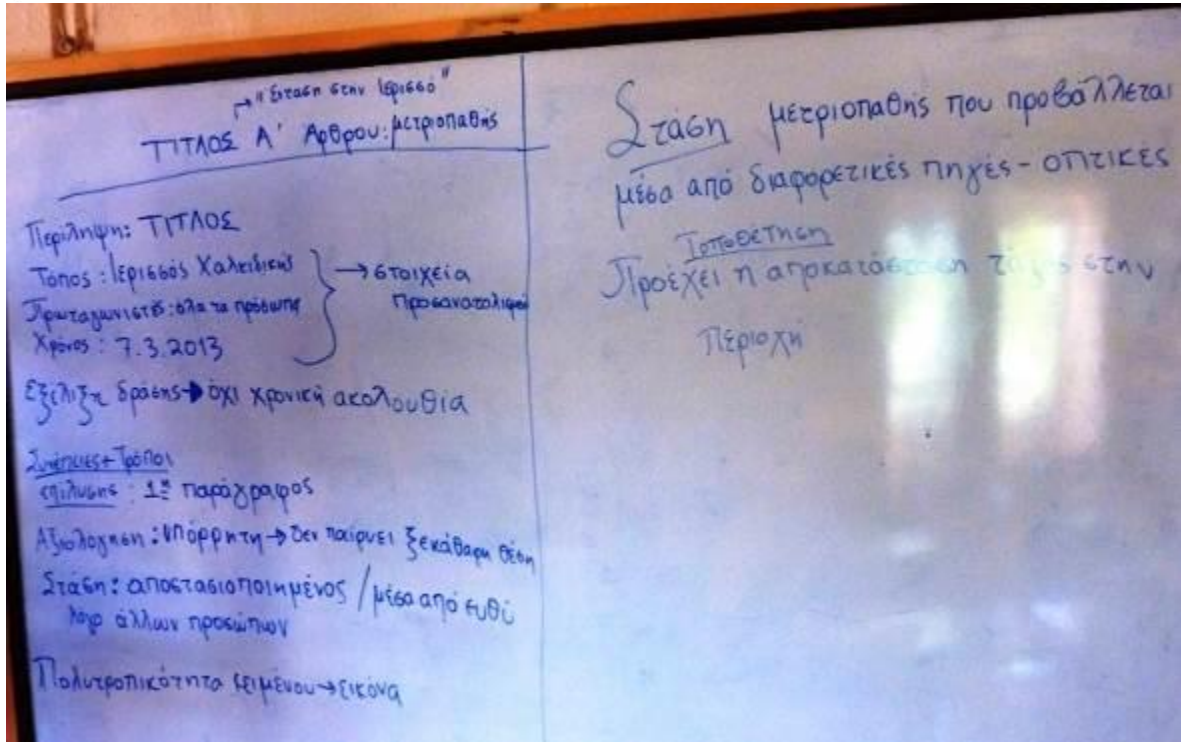 "Ένταση στην Ιερισσό"
ΤΙΤΛΟΣ Α' Άρθρου: μετριοπαθής
Περίληψη: ΤΙΤΛΟΣ
Τόπος: Ιερισσός Χαλκιδικής
Πρωταγωνιστές: όλα τα πρόσωπα
Χρόνος: 7.3.2013
→ στοιχεία
προσανατολισμού
Εξέλιξη δράσης → όχι χρονική ακολουθία
Συνέπειες + Τρόποι
επίλυσης: 1η παράγραφος
Αξιολόγηση: υπόρρητη → δεν παίρνει ξεκάθαρη θέση
Στάση: αποστασιοποιημένος / μέσα από ευθύ
λόγο άλλων προσώπων
Πολυτροπικότητα κειμένου → εικόνα
Στάση μετριοπαθής που προβάλλεται
μέσα από διαφορετικές πηγές - οπτικές
Τοποθέτηση
Προέχει η αποκατάσταση τάξης στην
περιοχή